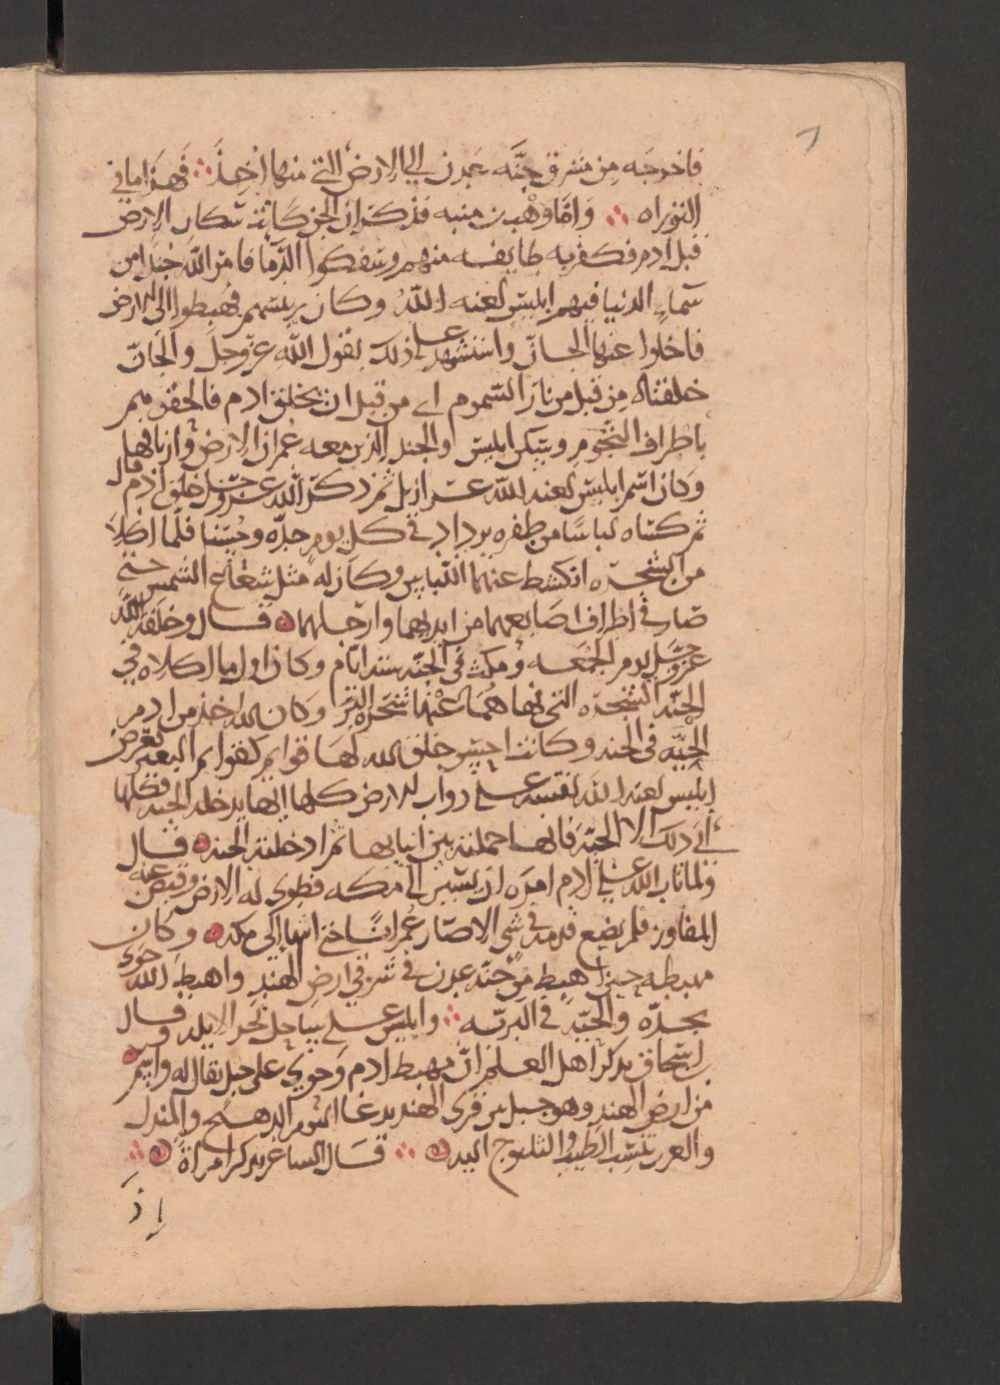 فاخرجه من مشرق جنّه عدن الي الارض التي منها اخذ ∴ فهذا ما في
التوراه ∴ وامّا وهب بن منبه فذكر ان الجن كانت سكان الارض
قبل ادم فكفر به طايفه منهم وسفكوا الدّما فامر الله جندا من
سماء الدنيا فيهم ابليس لعنه الله وكان رييسهم فهبطوا الى الارض
فاجلوا عنها الجانّ واستشهد على ذلك بقول الله عزّ وجلّ والجانّ
خلقناه من قبل من نار السّموم اي من قبل ان يخلق ادم فالحقوهم
باطراف التخوم وسكن ابليس والجند الذين معه عمران الارض واريافها
وكان اسم ابليس لعنه الله عزازيل ثم ذكر الله عز وجل خلق ادم قال
ثم كساه لباسا من ظفره يزداد في كل يوم جدّه وحسنا فلمّا اكلا
من الشجره انكشط عنهما اللباس وكان له مثل شعاع الشمس حتى
صار في اطراف اصابعهما من ايديهما وارجلهما قال وخلقه الله
عز وجل يوم الجمعه ومكث في الجنّه سته ايّام وكان اول ما اكلاه في
الجنّه الشجره التي نهاهما عنها شجره البرّ وكان الله اخذ من ادم
الحيّه في الجنه وكانت احسن خلق الله لها قوايم كقوايم البعير فعرض
ابليس لعنه الله نفسه على دواب الارض كلها انها يدخله الجنه فكلها
ابي ذلك الا الحيّه فانها حملته بين انيابها ثم ادخلته الجنه قال
ولما تاب الله على ادم امره ان يسير الى مكه فطوى له الارض وقبض عنه
المفاوز فلم يضع قدمه في شي الا صار عمرانا حتى انتها الى مكه وكان
مهبطه حين اهبط من جنه عدن في شرقي ارض الهند واهبط الله حوى
بجدّه والحيّه في البريّه ∴ وابليس على ساحل بحر الابله وقال
ابن اسحاق يذكر اهل العلم انّ مهبط ادم وحوى على جبل يقال له واسم
من ارض الهند وهو جبل بين قرى الهند يدعا اليوم الدهنج والمندل
∴ قال الشاعر يذكر امراة
اذ